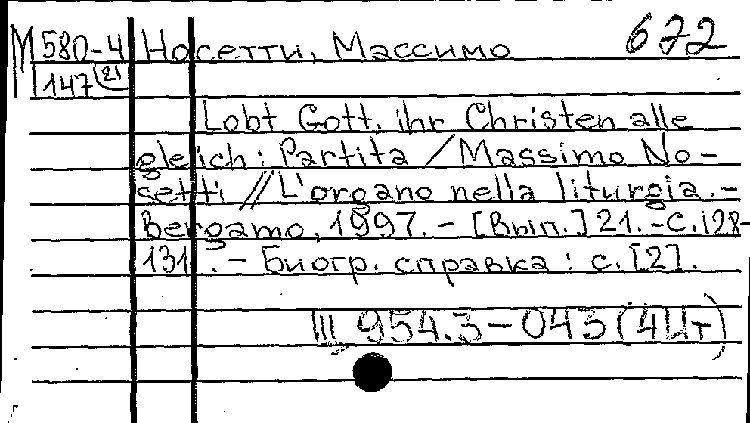 М 580-4 Носетти, Массимо 672
147(21)
Lobt Gott, ihr Christen alle
gleich : Partita / Massimo No-
setti // L'organo nella liturgia. -
Bergamo, 1997. - [Вып.] 21. - С. 128-
131. - Биогр. справка : с. [2].
Щ 954.3-043(4Ит)